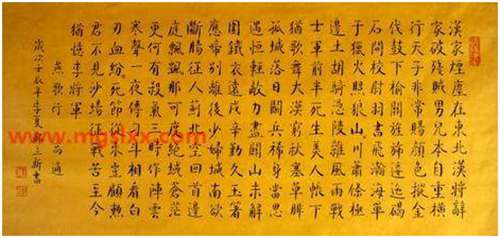 漢家煙塵在東北漢將辭
家破殘賊男兒本自重橫
行天子非常賜顏色摐金
伐鼓下榆關旌旆逶迤碣
石間校尉羽書飛瀚海單
于獵火照狼山川蕭條極
邊土胡騎憑陵雜風雨戰
士軍前半死生美人帳下
猶歌舞大漠窮秋塞草腓
孤城落日鬥兵稀身當恩
遇恒輕敵力盡關山未解
圍鐵衣遠戍辛勤久玉箸
應啼別離後少婦城南欲
斷腸征人薊北空回首邊
庭飄颻那可度絕域蒼茫
更何有殺氣三時作陣雲
寒聲一夜傳刁斗相看白
刃血紛死節從來豈顧勲
君不見沙場征戰苦至今
猶憶李將軍
燕歌行 高適
歲次丁亥年季夏
www.mgslxx.com